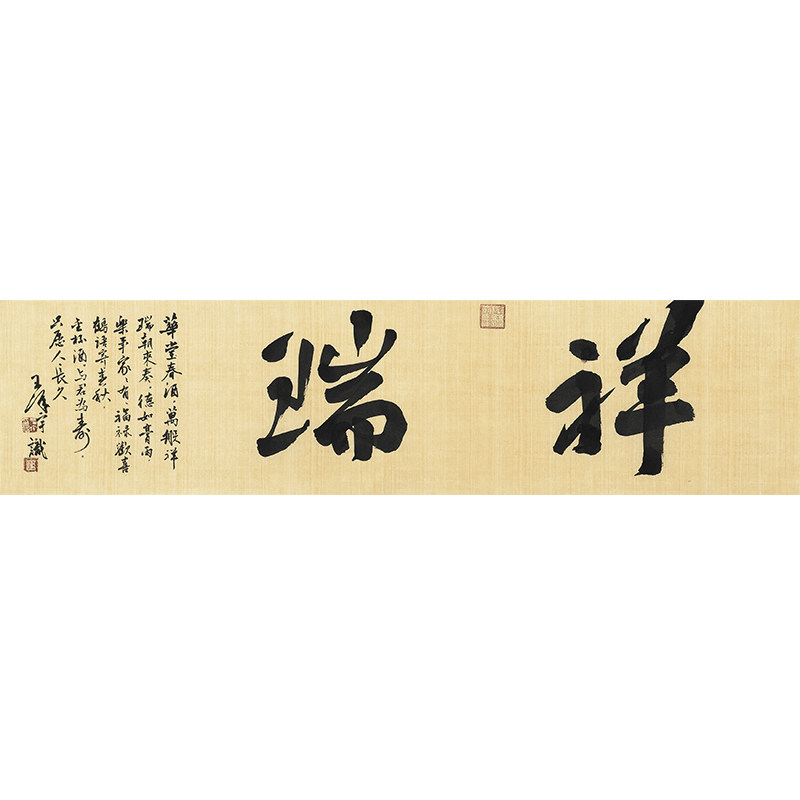 祥瑞
華堂春酒，萬般祥
瑞朝來奏，德如膏雨，
樂平家家有，福祿歡喜
鶴語寄春秋，
金杯酒，与君為壽，
只愿人長久
王 識